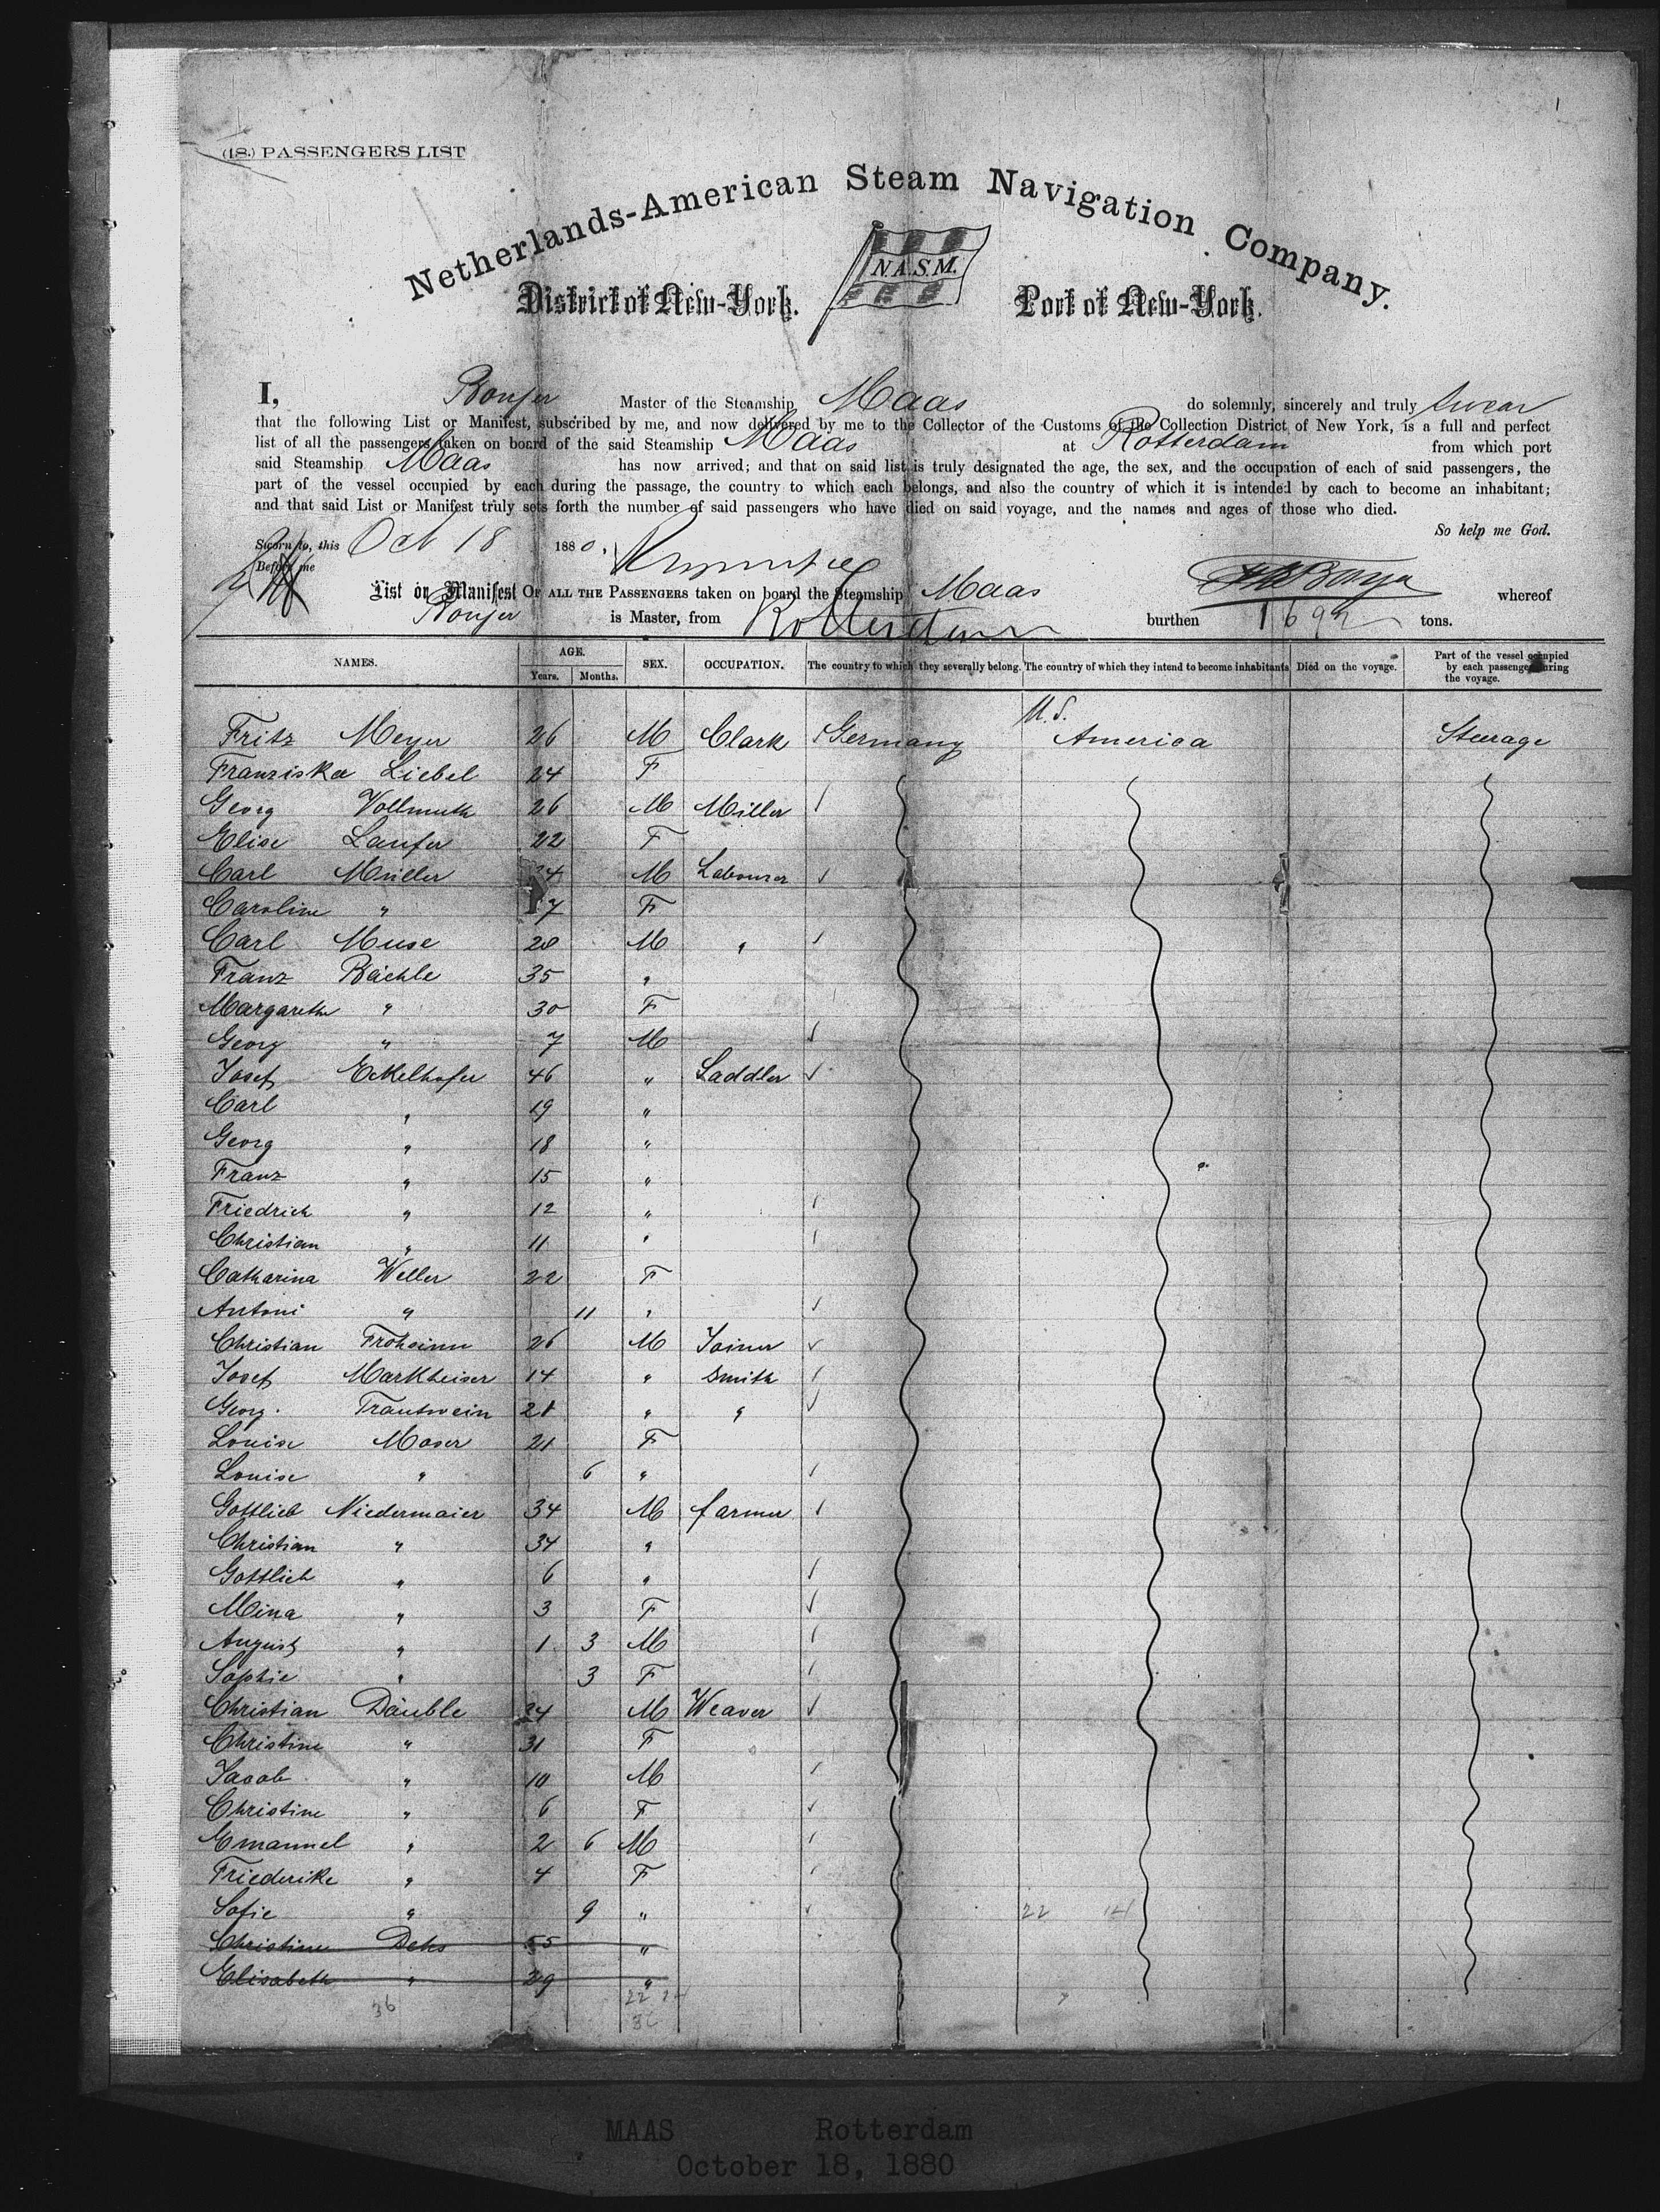 1
(18.) PASSENGERS LIST
Netherlands-American Steam Navigation Company.
N.A.S.M.
District of New-York. Port of New-York.
I, Bonjer Master of the Steamship Maas do solemnly, sincerely and truly swear
that the following List or Manifest, subscribed by me, and now delivered by me to the Collector of the Customs of the Collection District of New York, is a full and perfect
list of all the passengers taken on board of the said Steamship Maas at Rotterdam from which port
said Steamship Maas has now arrived; and that on said list is truly designated the age, the sex, and the occupation of each of said passengers, the
part of the vessel occupied by each during the passage, the country to which each belongs, and also the country of which it is intended by each to become an inhabitant;
and that said List or Manifest truly sets forth the number of said passengers who have died on said voyage, and the names and ages of those who died.
So help me God.
Sworn to, this Oct 18 1880,
Before me
List or Manifest OF ALL THE PASSENGERS taken on board the Steamship Maas whereof
Bonjer is Master, from Rotterdam burthen 1692 tons.
NAMES. AGE. Years. Months. SEX. OCCUPATION. The country to which they severally belong. The country of which they intend to become inhabitants Died on the voyage. Part of the vessel occupied by each passenger during the voyage.
U.S.
Fritz Meyer 26 M Clark Germany America Steerage
Franziska Liebel 24 F
Georg Vollmuth 26 M Miller
Elise Laufer 22 F
Carl Müller 24 M Labourer
Caroline " 7 F
Carl Muse 28 M "
Franz Bächle 35 "
Margarethe " 30 F
Georg " 7 M
Josef Eckelhofer 46 " Saddler
Carl " 19 "
Georg " 18 "
Franz " 15 "
Friedrich " 12 "
Christian " 11 "
Catharina Weller 22 F
Antoni " 11 "
Christian Frohsinn 26 M Joiner
Josef Markheiser 14 " Smith
Georg Trautwein 21 " "
Louise Moser 21 F
Louise " 6 "
Gottlieb Niedermaier 34 M farmer
Christian " 34 "
Gottlieb " 6 "
Mina " 3 F
August " 1 3 M
Sophie " 3 F
Christian Däuble 34 M Weaver
Christine " 31 F
Jacob " 10 M
Christine " 6 F
Emanuel " 2 6 M
Friederike " 4 F
Sofie " 9 " 22 14
Christine Dehs 55 "
Elisabeth " 29 "
36 22 14
36
MAAS Rotterdam
October 18, 1880